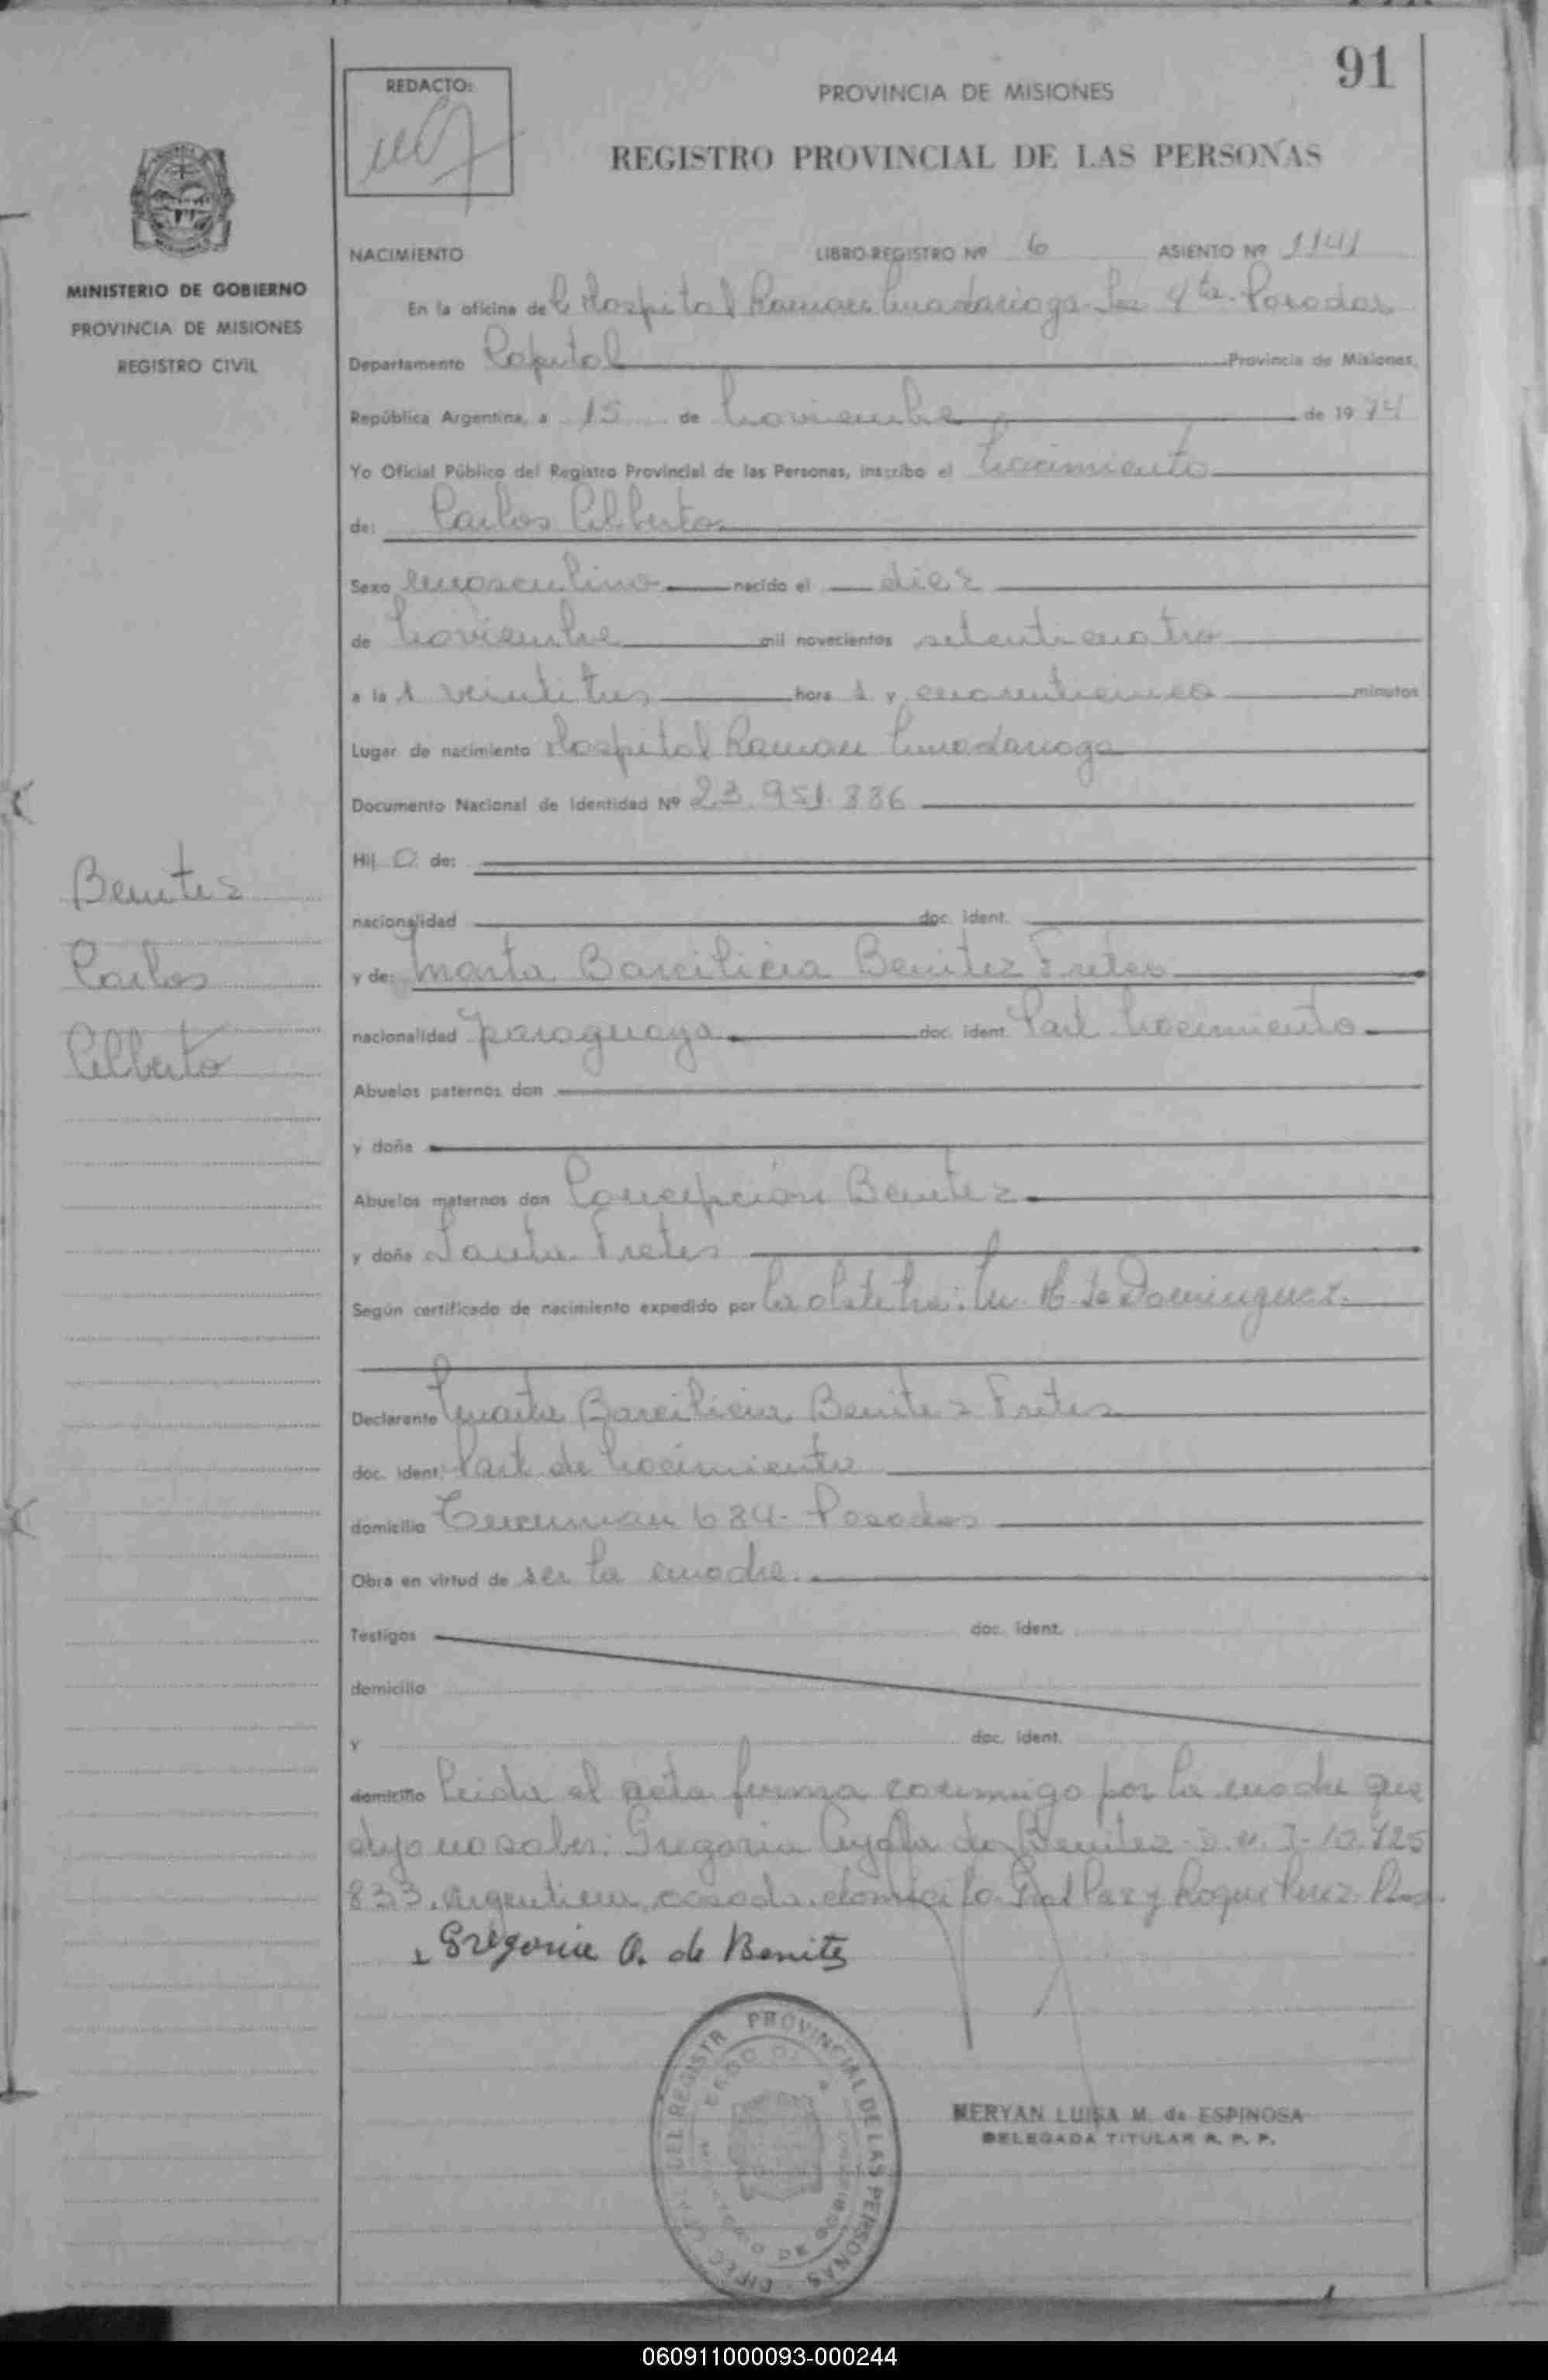 91
REDACTO:
PROVINCIA DE MISIONES
REGISTRO PROVINCIAL DE LAS PERSONAS
MINISTERIO DE GOBIERNO
PROVINCIA DE MISIONES
REGISTRO CIVIL
NACIMIENTO LIBRO-REGISTRO Nº 6 ASIENTO Nº 1141
En la oficina del Hospital Ramon Madariaga Sec 4ta. Posadas
Departamento Capital Provincia de Misiones,
República Argentina, a 15 de Noviembre de 1974
Yo Oficial Público del Registro Provincial de las Personas, inscribo el Nacimiento
de: Carlos Alberto
Sexo masculino nacido el diez
de Noviembre mil novecientos setenticuatro
a las veintitres horas y cuarenticinco minutos
Lugar de nacimiento Hospital Ramon Madariaga
Documento Nacional de Identidad Nº 23.951.836
Hijo de:
nacionalidad doc. ident.
Benitez
Carlos
Alberto
y de: Marta Barcilicia Benitez Fretes
nacionalidad paraguaya doc. ident. Part. Nacimiento
Abuelos paternos don
y doña
Abuelos maternos don Concepcion Benitez
y doña Santa Fretes
Según certificado de nacimiento expedido por la obstetra: M. H de Dominguez
Declarante Marta Barcilicia Benitez Fretes
doc. ident. Part. de Nacimiento
domicilio Tucuman 684 - Posadas
Obra en virtud de ser la madre.
Testigos doc. ident.
domicilio
y doc. ident.
domicilio Leida el acta firma conmigo por la madre que
dijo no saber: Gregoria Ayala de Benitez - D.N.I - 10.725
833. argentina, casada, domicilio Gral Paz y Roque Perez. Pdas.
Gregoria A. de Benitez
PROVINCIAL DE LAS PERSONAS
MERYAN LUISA M. de ESPINOSA
DELEGADA TITULAR R. P. P.
060911000093-000244